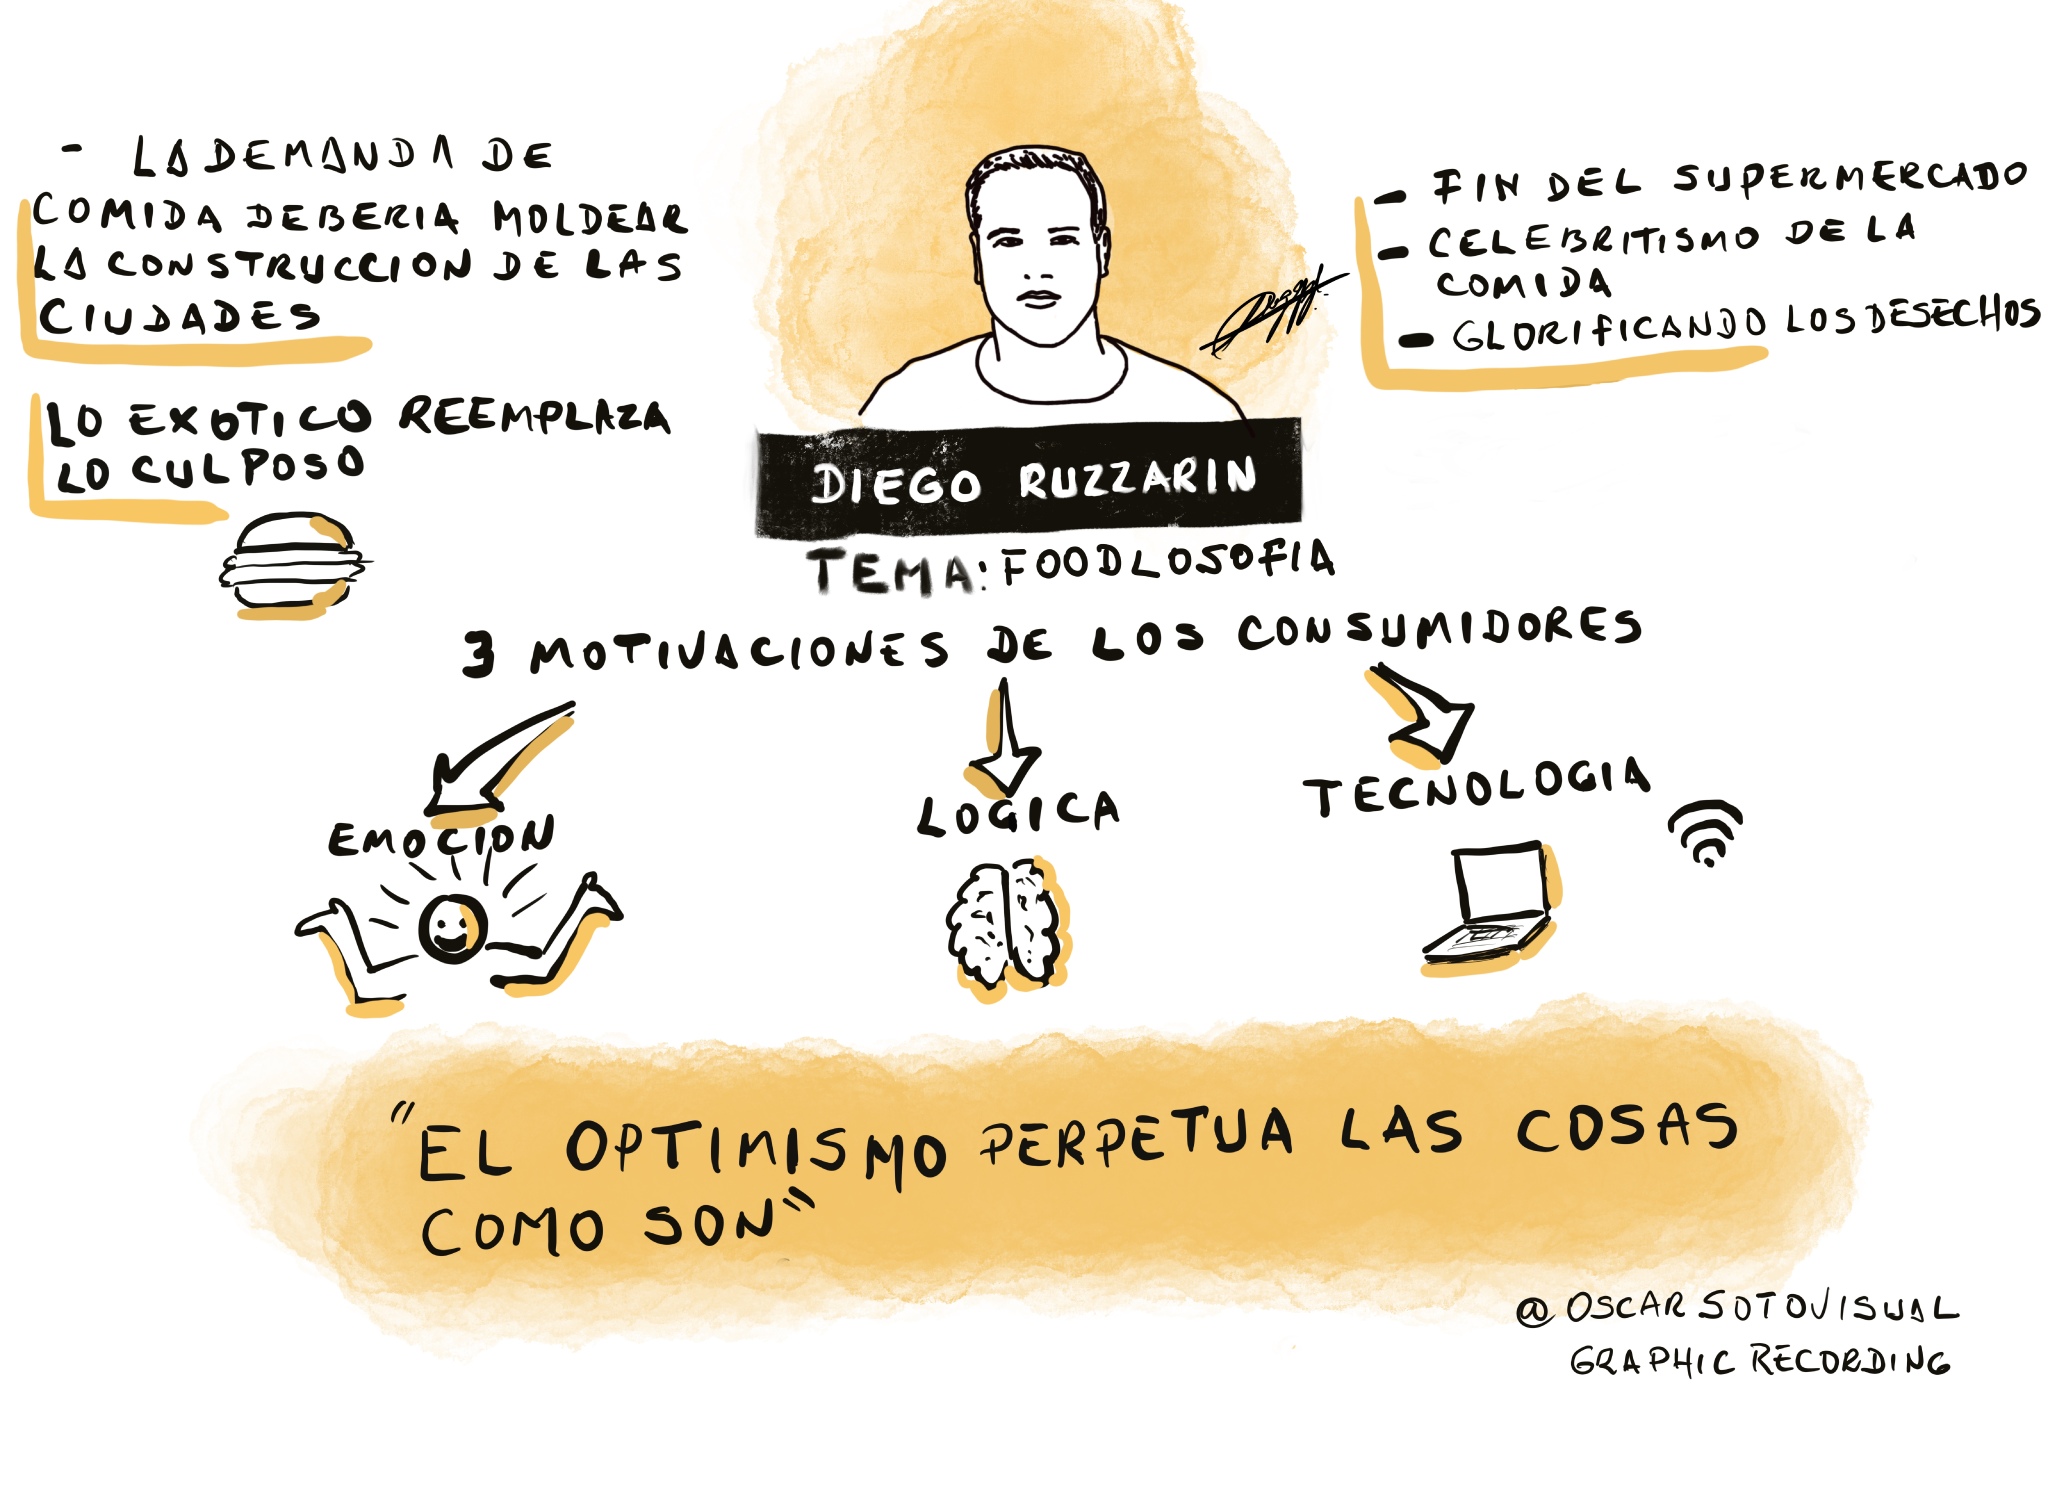 - LA DEMANDA DE
COMIDA DEBERIA MOLDEAR
LA CONSTRUCCION DE LAS
CIUDADES
LO EXOTICO REEMPLAZA
LO CULPOSO
- FIN DEL SUPERMERCADO
- CELEBRITISMO DE LA
COMIDA
- GLORIFICANDO LOS DESECHOS
DIEGO RUZZARIN
TEMA: FOODLOSOFIA
3 MOTIVACIONES DE LOS CONSUMIDORES
EMOCION
LOGICA
TECNOLOGIA
"EL OPTIMISMO PERPETUA LAS COSAS
COMO SON"
@OSCARSOTOVISUAL
GRAPHIC RECORDING